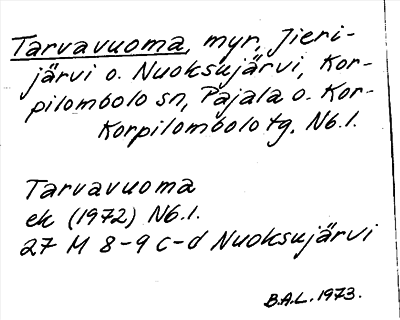 Tarvavuoma, myr, Jieri-
järvi o. Nuoksujärvi, Kor-
pilombolo sn, Pajala o. Kor-
Korpilombolo tg, Nb.l.
Tarvavuoma
ek (1972) Nb.l.
27 M 8-9 c-d Nuoksujärvi
B.A.L. 1973.